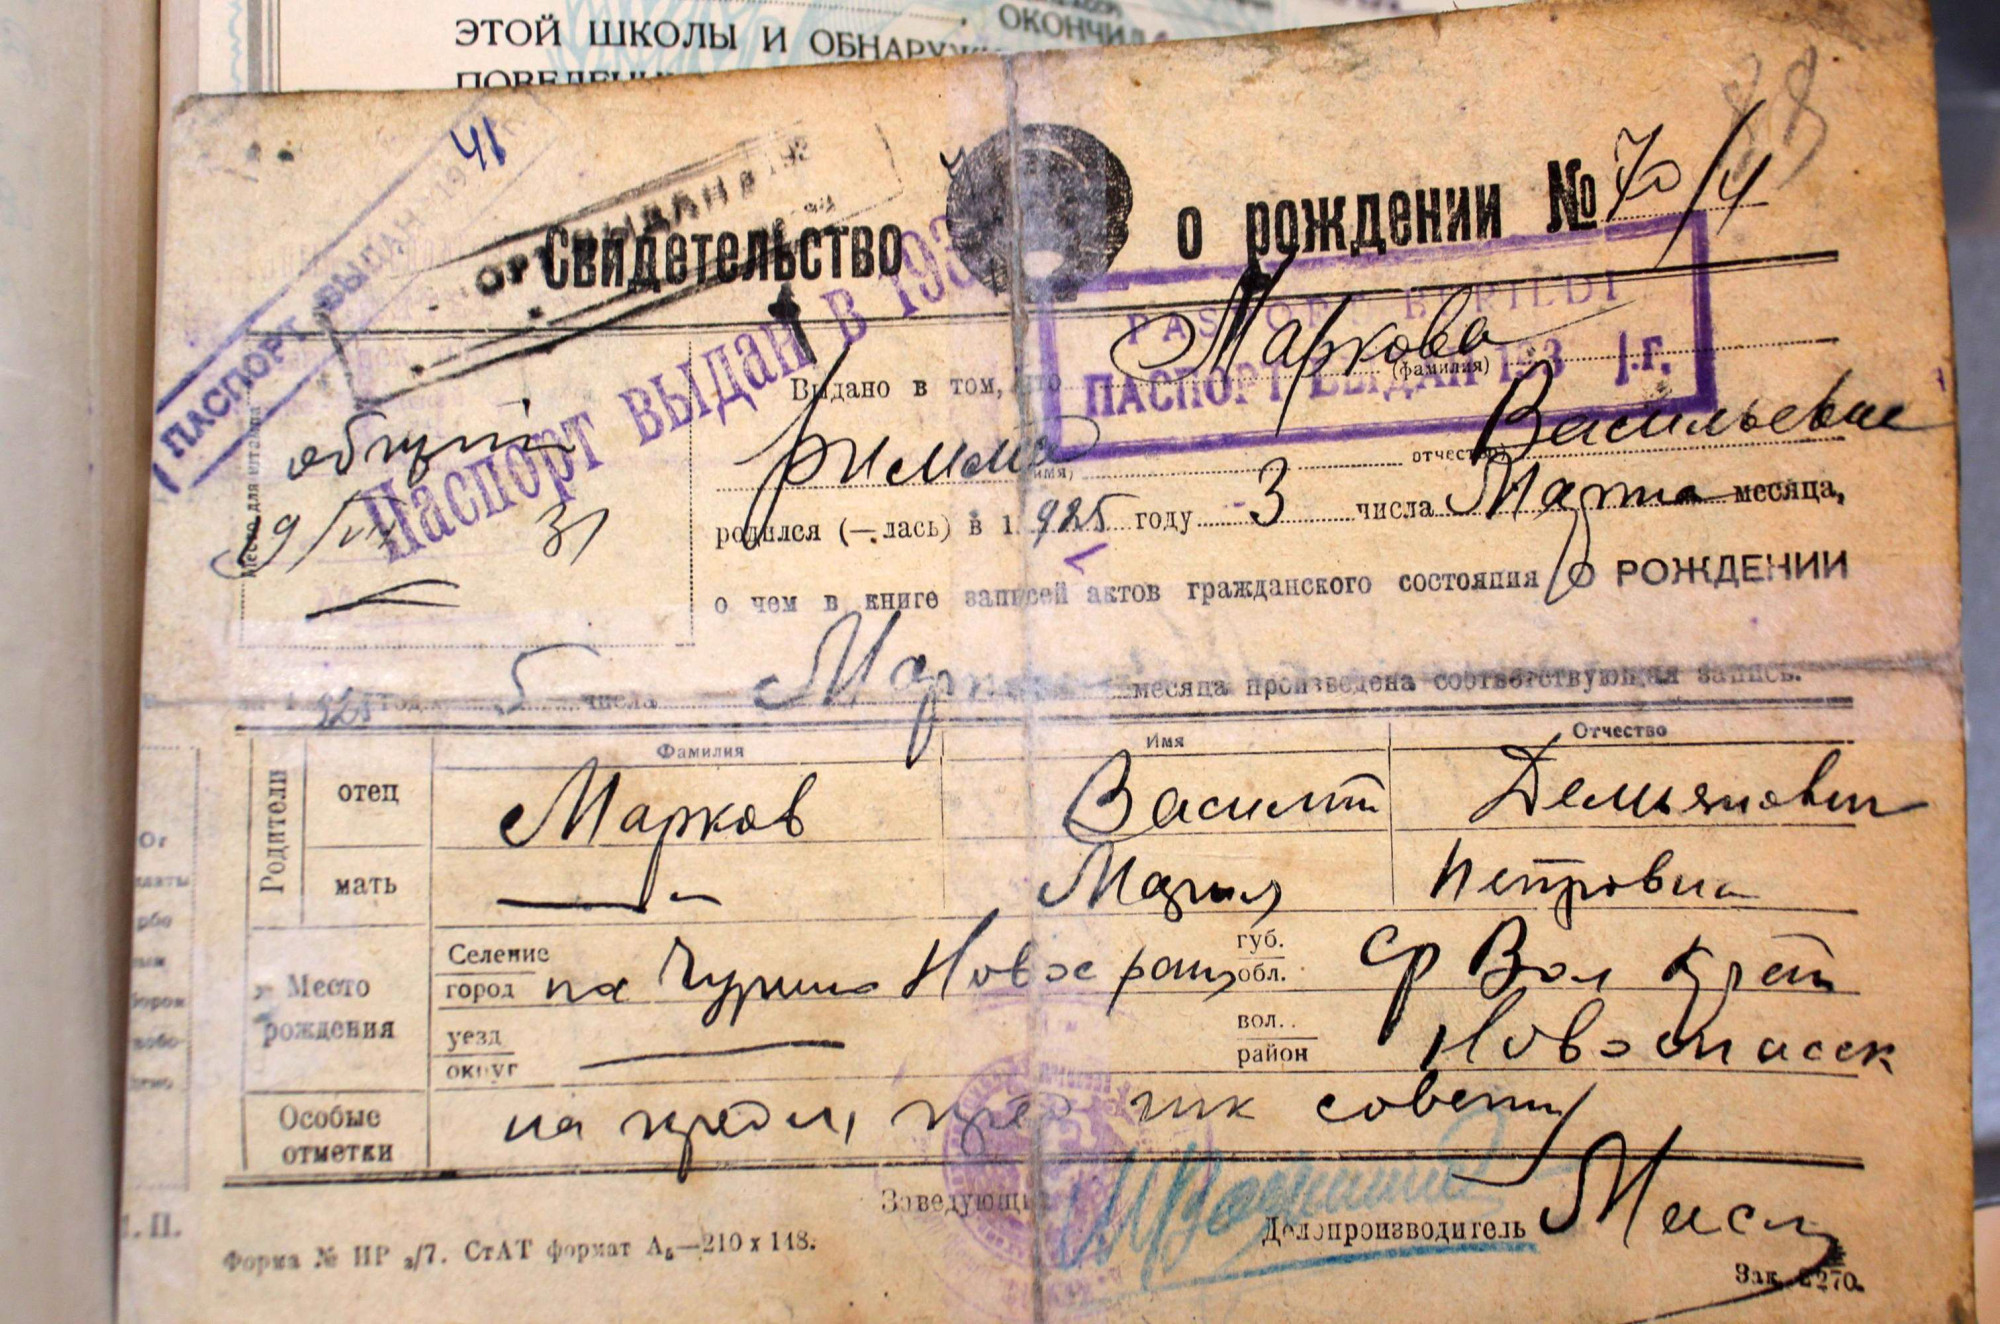 ОКОНЧИЛ
ЭТОЙ ШКОЛЫ И ОБНАРУЖ
41
88
Свидетельство о рождении № 70/4
ПАСПОРТ ВЫДАН 19
ВЫДАНА 192
Паспорт выдан в 193
PASPORT BERILDI
ПАСПОРТ ВЫДАН 193 1.г.
Место для штампа
общий
9/VII 31
Выдано в том, что Маркова
(фамилия)
Римма Васильевна
(имя) отчество)
родился (—лась) в 1925 году 3 числа Марта месяца,
о чем в книге записей актов гражданского состояния О РОЖДЕНИИ
за 1925 год 5 числа Марта месяца произведена соответствующая запись.
Фамилия Имя Отчество
Родители
отец Марков Василий Демьянович
мать — „ — Мария Петровна
Место рождения
Селение
город
на Чурина Новоспасск
губ.
обл.
Ср Вол край
уезд
округ
—
вол..
район
Новоспасск
Особые отметки
совету
Заведующий
Делопроизводитель
М. П.
Форма № ИР 3/7. СтАТ формат А5—210 х 148.
Зак. 2270.